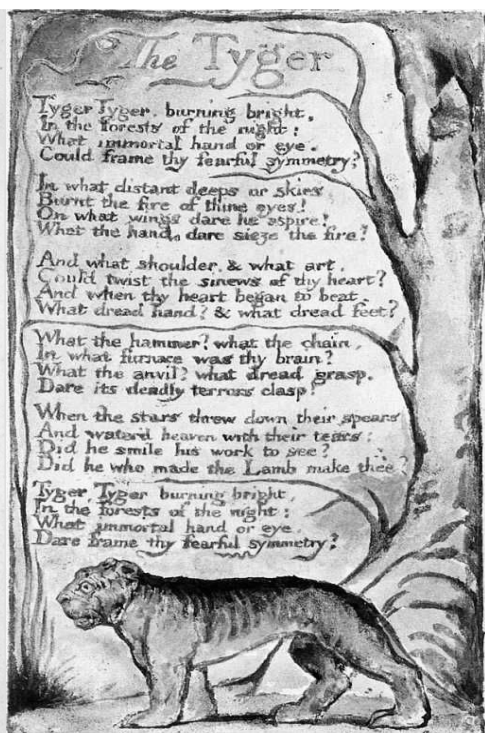 The Tyger
Tyger Tyger. burning bright,
In the forests of the night:
What immortal hand or eye.
Could frame thy fearful symmetry?
In what distant deeps or skies
Burnt the fire of thine eyes!
On what wings dare he aspire!
What the hand, dare sieze the fire?
And what shoulder, & what art,
Could twist the sinews of thy heart?
And when thy heart began to beat.
What dread hand? & what dread feet?
What the hammer? what the chain,
In what furnace was thy brain?
What the anvil? what dread grasp.
Dare its deadly terrors clasp!
When the stars threw down their spears
And water'd heaven with their tears:
Did he smile his work to see?
Did he who made the Lamb make thee?
Tyger, Tyger burning bright,
In the forests of the night:
What immortal hand or eye
Dare frame thy fearful symmetry?